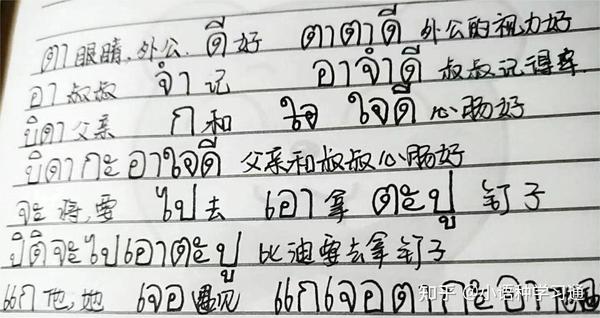 ตา 眼睛,外公. ดี 好 ตาตาดี 外公的视力好
อา 叔叔 จำ 记 อาจำดี 叔叔记得牢.
บิดา 父亲 ก 和 ใจ ใจดี 心肠好
บิดากะอาใจดี 父亲和叔叔心肠好
จะ 将,要 ไป 去 เอา 拿 ตะปู 钉子
ปิติจะไปเอาตะปู 比迪要去拿钉子
แก 他,她 เจอ 遇见 แกเจอตากะอา
知乎 @小语种学习通